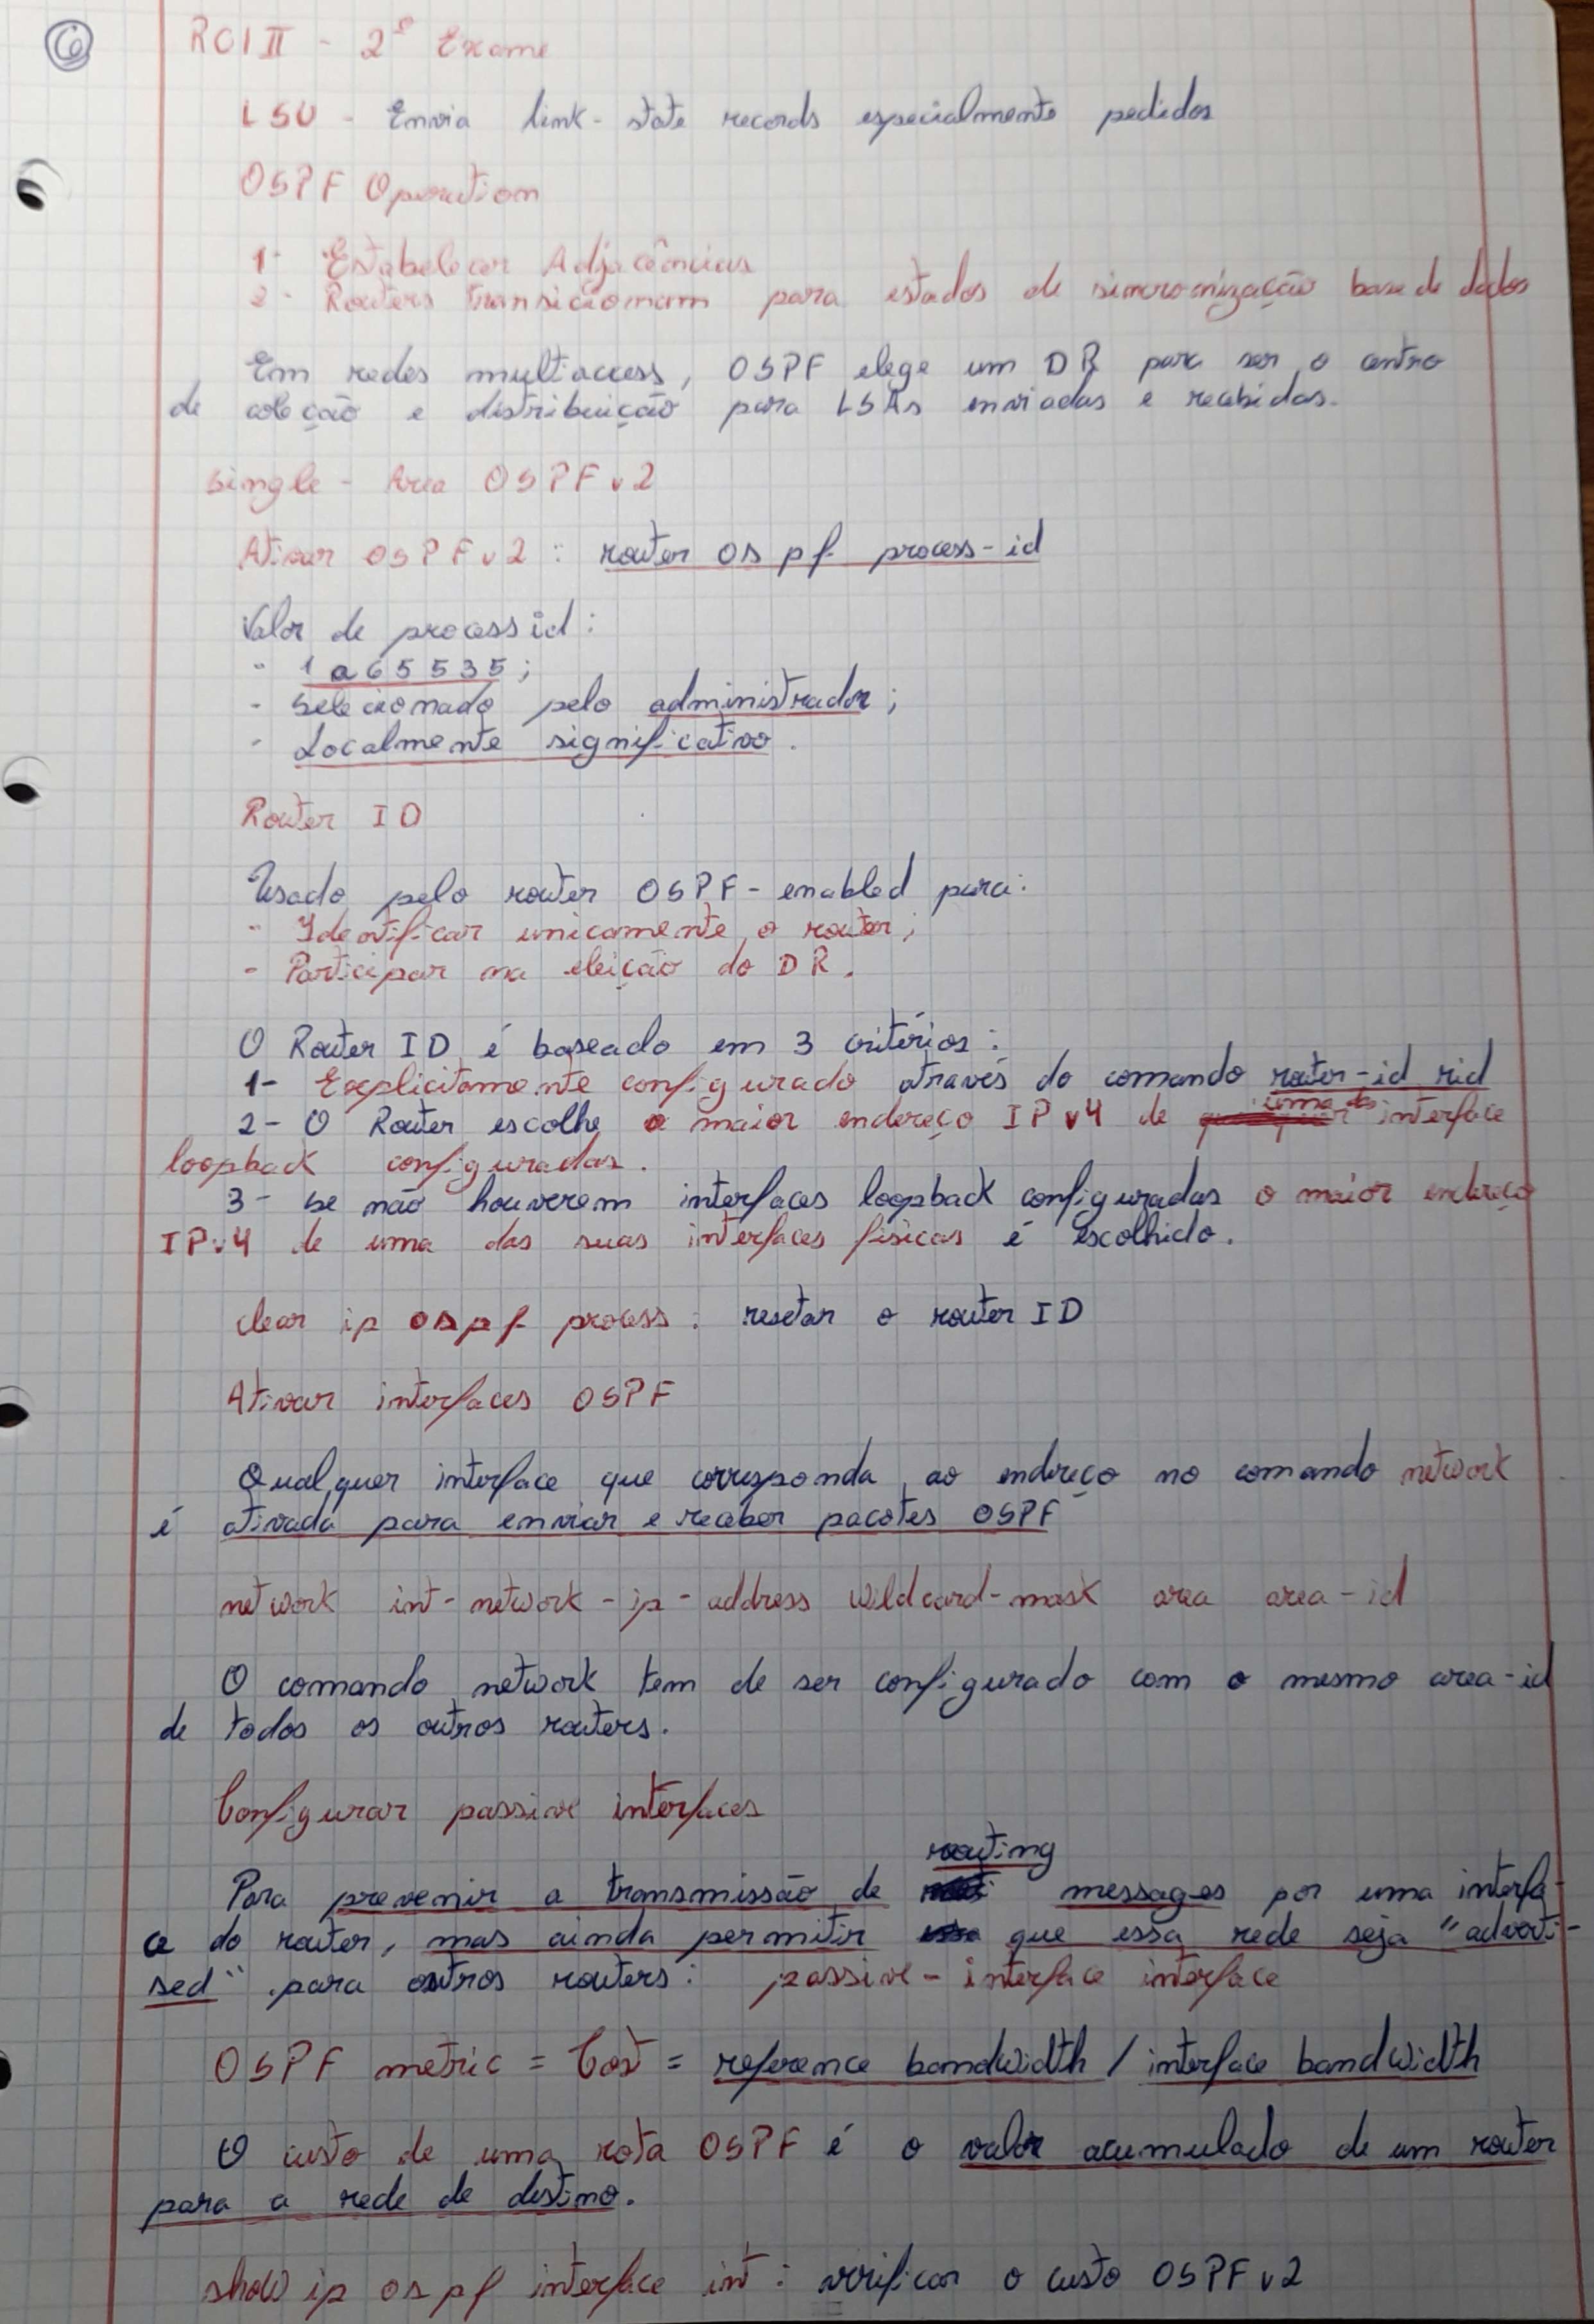 6
RCI II - 2º Exame
LSU - Envia link-state records especialmente pedidos
OSPF Operation
1- Estabelecer Adjacências
2- Routers transicionam para estados de sincronização base de dados
Em redes multiaccess, OSPF elege um DR para ser o centro
de coleção e distribuição para LSAs enviadas e recebidas.
Single-Area OSPFv2
Ativar OSPFv2: router ospf process-id
Valor de process id:
- 1 a 65535;
- Selecionado pelo administrador;
- Localmente significativo.
Router ID
Usado pelo router OSPF-enabled para:
- Identificar unicamente o router;
- Participar na eleição do DR.
O Router ID é baseado em 3 critérios:
1- Explicitamente configurado através do comando router-id rid
2- O Router escolhe o maior endereço IPv4 de uma das interface
loopback configuradas.
3- Se não houverem interfaces loopback configuradas o maior endereço
IPv4 de uma das suas interfaces físicas é escolhido.
clear ip ospf process: resetar o router ID
Ativar interfaces OSPF
Qualquer interface que corresponda ao endereço no comando network
é ativada para enviar e receber pacotes OSPF
network int-network-ip-address wildcard-mask area area-id
O comando network tem de ser configurado com o mesmo area-id
de todos os outros routers.
Configurar passive interfaces
Para prevenir a transmissão de routing messages por uma interfa-
ce do router, mas ainda permitir que essa rede seja "adverti-
sed" para outros routers: passive-interface interface
OSPF metric = Cost = reference bandwidth / interface bandwidth
O custo de uma rota OSPF é o valor acumulado de um router
para a rede de destino.
show ip ospf interface int: verificar o custo OSPFv2